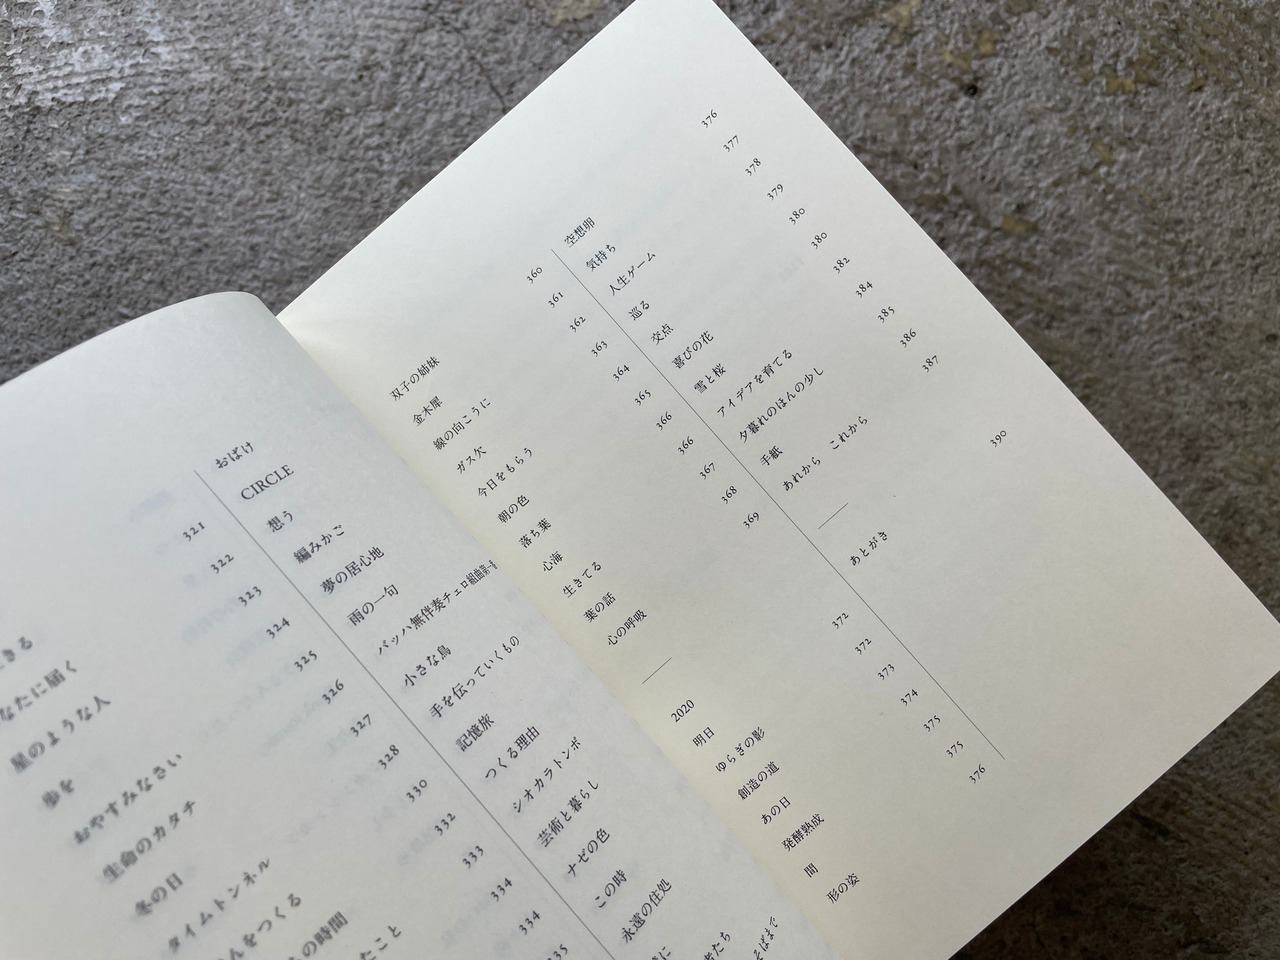 きる 321
なたに届く 322
星のような人 323
歩を 324
おやすみなさい 325
生命のカタチ 326
冬の日 327
タイムトンネル 328
をつくる 330
の時間 332
たこと 333
334
334
335
おばけ
CIRCLE
想う
編みかご
夢の居心地
雨の一句
バッハ無伴奏チェロ組曲第一番
小さな鳥
手を伝っていくもの
記憶旅
つくる理由
シオカラトンボ
芸術と暮らし
ナゼの色
この時
永遠の住処
に
者たち
そばまで
双子の姉妹 360
金木犀 361
線の向こうに 362
ガス欠 363
今日をもらう 364
朝の色 365
落ち葉 366
心海 366
生きてる 367
葉の話 368
心の呼吸 369
2020
明日 372
ゆらぎの影 372
創造の道 373
あの日 374
発酵熟成 375
間 375
形の姿 376
空想卵 376
気持ち 377
人生ゲーム 378
巡る 379
交点 380
喜びの花 380
雪と桜 382
アイデアを育てる 384
夕暮れのほんの少し 385
手紙 386
あれから これから 387
あとがき 390